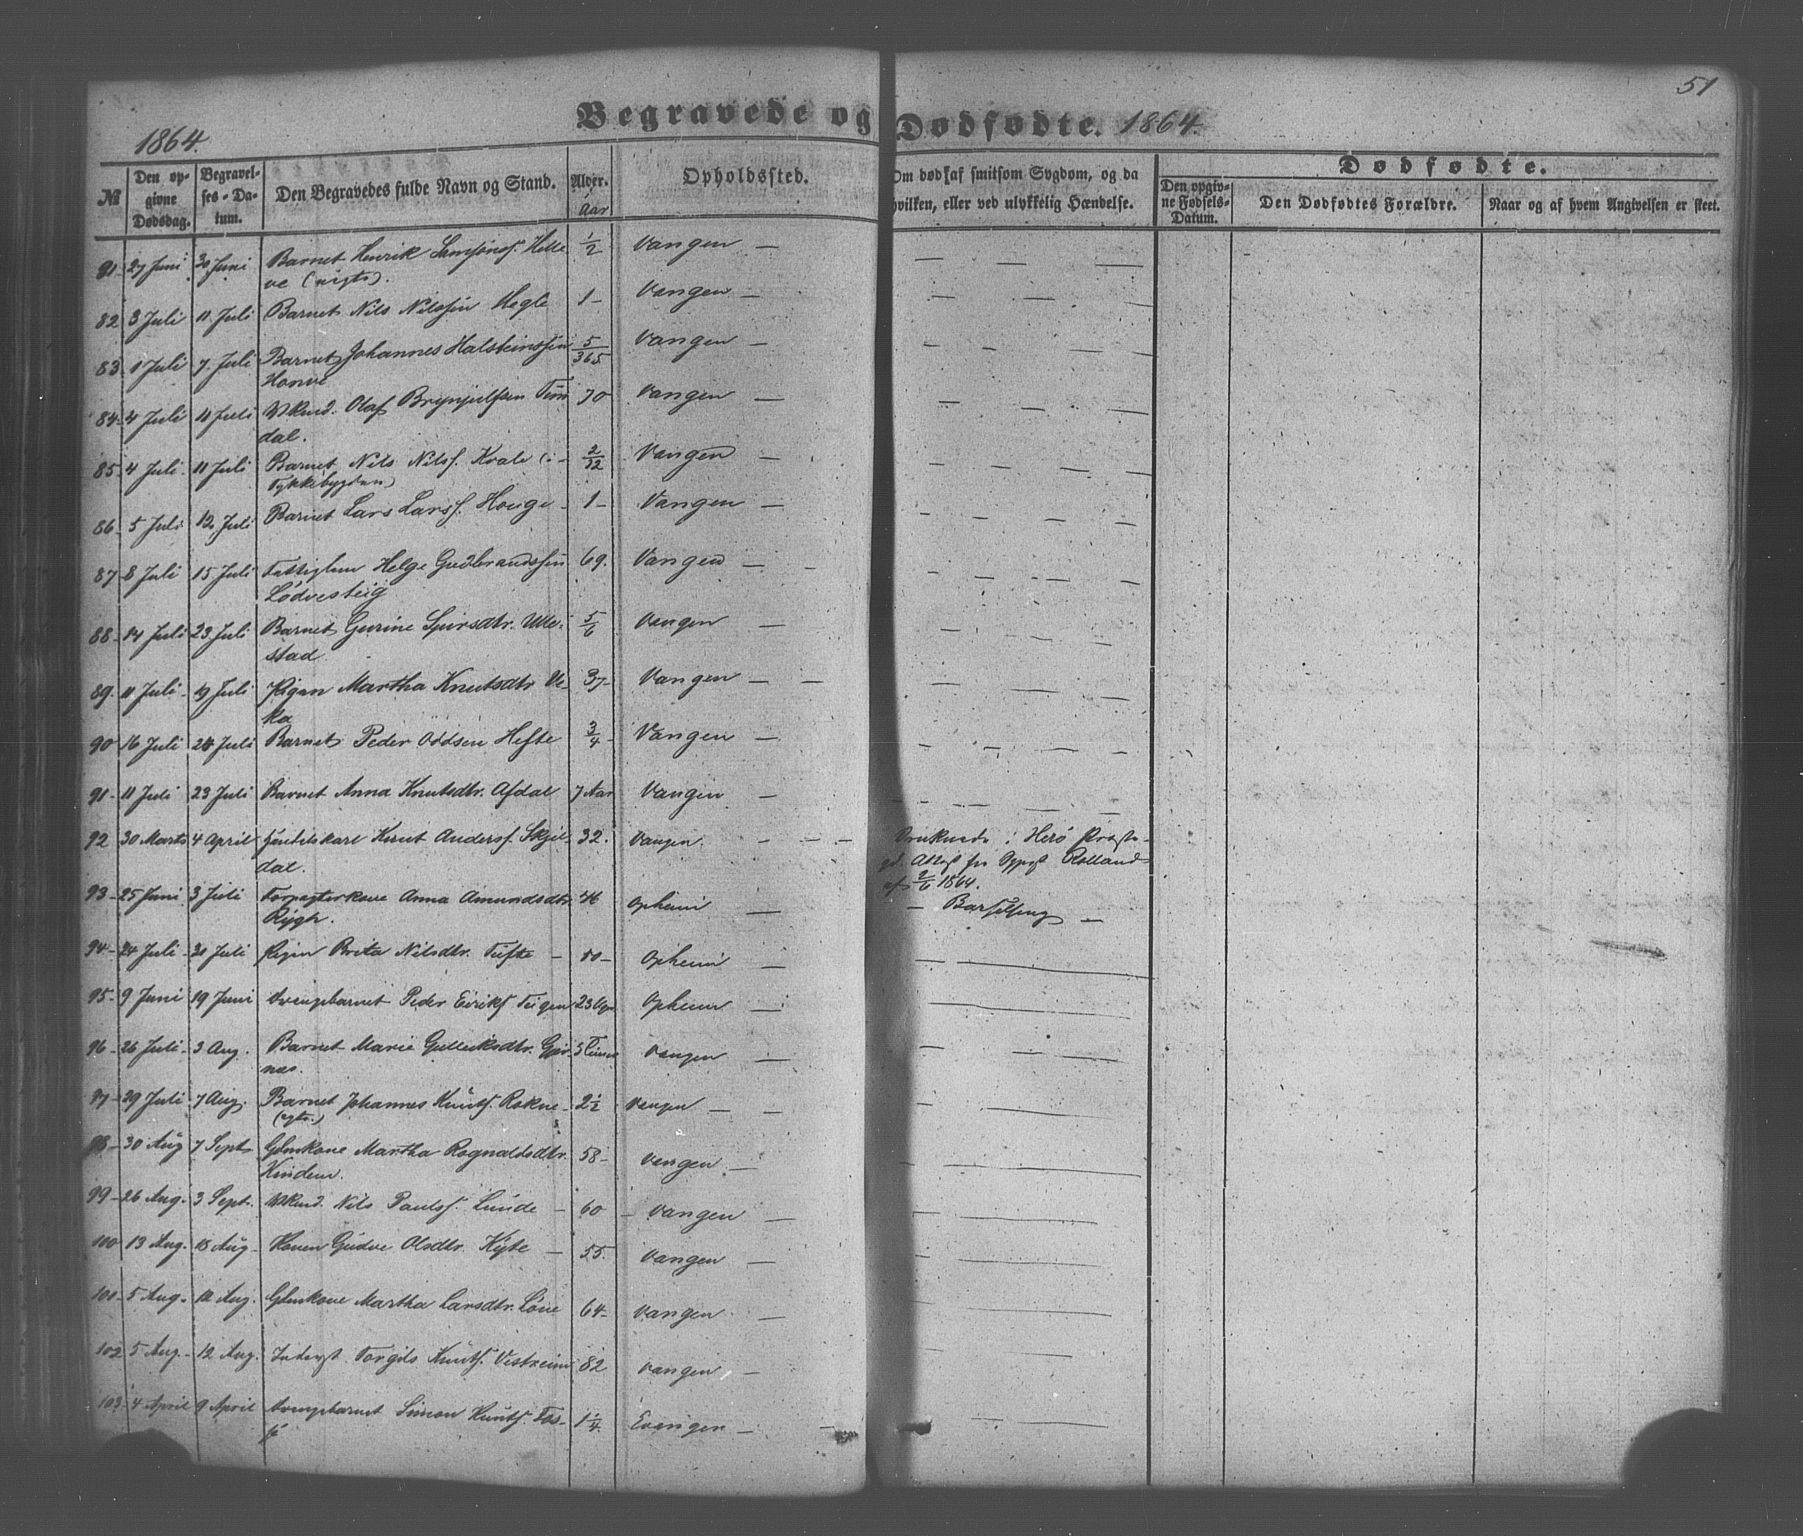 51
Begravede og Dødfødte. 1864.
1864.
№ Den opgivne Dødsdag. Begravelses-Datum. Den Begravedes fulde Navn og Stand. Alder. Aar Opholdssted. Om død af smitsom Sygdom, og da hvilken, eller ved ulykkelig Hændelse. Dødfødte.
Den opgivne Fødsels-Datum. Den Dødfødtes Forældre. Naar og af hvem Angivelsen er skeet.
81 27 Juni 30 Juni Barnet Henrik Samsøns. Helle 1/2 Vangen — — — —
ve
82 3 Juli 11 Juli Barnet Nils Nilssen Hegle 1 – Vangen — — — —
83 1 Juli 7. Juli Barnet Johannes Halsteinssen 5/365 Vangen — — — —
84 4 Juli 11 Juli Olaf Brynjulfsen Tün 70 Vangen — — — —
dal.
85 4 Juli 11 Juli Barnet Nils Nilss. Kvale (i – 2/12 Vangen — — — —
Tykkebygden)
86 5 Juli 12 Juli Barnet Lars Larss. Houge 1 – Vangen — — — —
87 8 Juli 15 Juli Fattiglem Helge Gudbrandssen 69. Vangen — — — —
Lødvesteig
88 14 Juli 23 Juli Barnet Gurine Sjursdtr. Ulle- 5/6 Vangen — — — —
stad
89. 11 Juli 19 Juli Pigen Martha Knutsdtr Ve- 37 – Vangen — — — —
ka
90 16 Juli 24 Juli Barnet Peder Oddsen Hefte 3/4 Vangen — — — —
91 11 Juli 23 Juli Barnet Anna Knutsdtr. Afdal 7 Aar Vangen — — — —
92 30 Marts 4 April Handelskarl Knut Anderss. Skjel- 32. Vangen. — Druknede i Herø Præste-
dal. gd. Attest fra Sygept Rolland
af 2/6 1864.
93 25 Juni 3 Juli Forpagterkone Anna Amundsdtr. Opheim — — Barselseng —
Rygh.
94 24 Juli 31 Juli Pigen Brita Nilsdtr. Tufte – 50 – Opheim — — —
95 9 Juni 19 Juni Drengebarnet Peder Eiriks. Teigen Opheim — — —
96 26 Juli 3 Aug. Barnet Marie Gulleiksdtr. Gjer- 5 Timer Vangen — — —
nes.
97 29 Juli 7 Aug. Barnet Johannes Knuts. Rokne 2 1/2 Vangen — — — —
98 30 Aug 7 Sept Gdmkone Martha Rognaldsdtr. 58 – Vangen — — —
Kindem.
99 26 Aug. 3 Sept. Nils Pauls. Lunde — 60 Vangen — — —
100 13 Aug. 18 Aug. Konen Gudve Olsdtr. Kyte — 55. Vangen — — —
101 5 Aug. 12 Aug. Gdmkone Martha Larsdtr. Løne 64 – Vangen — — —
102 5 Aug. 12 Aug. Inderst Torgils Knuts. Vestreim 82 Vangen — — —
103 4 April 9 April Drengebarnet Simon Knuts. Fos- 1 1/4 Evangen — — —
se